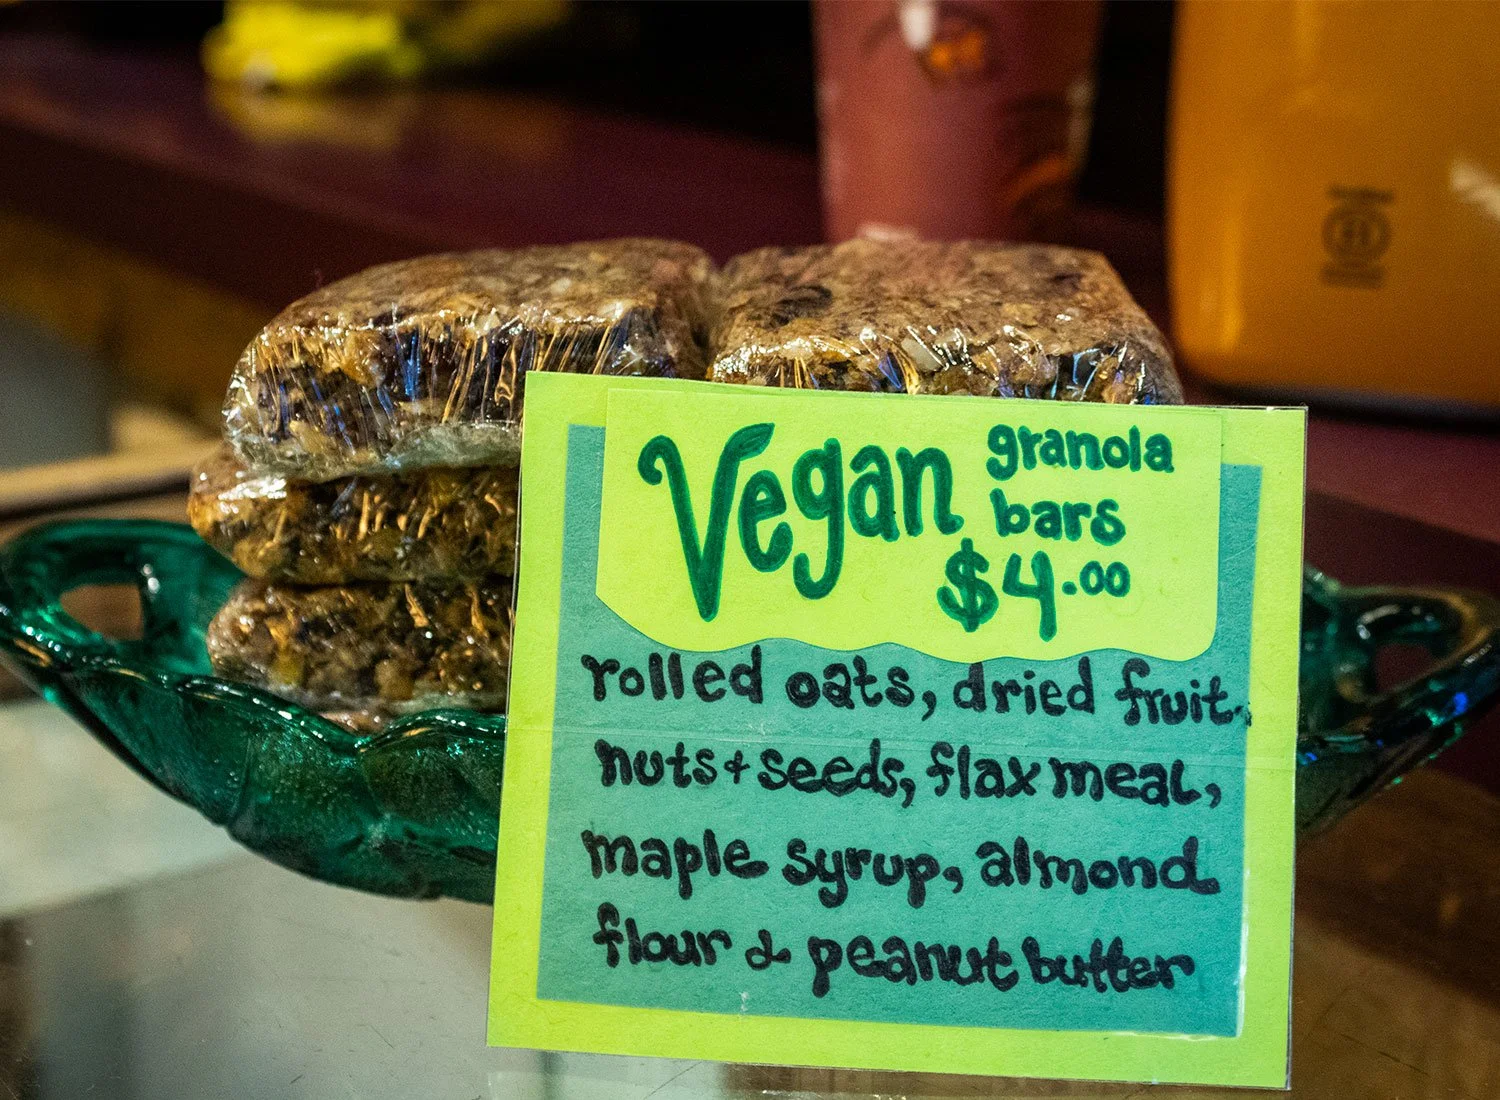 Vegan granola
bars
$4.00
rolled oats, dried fruit,
nuts + seeds, flax meal,
maple syrup, almond
flour & peanut butter